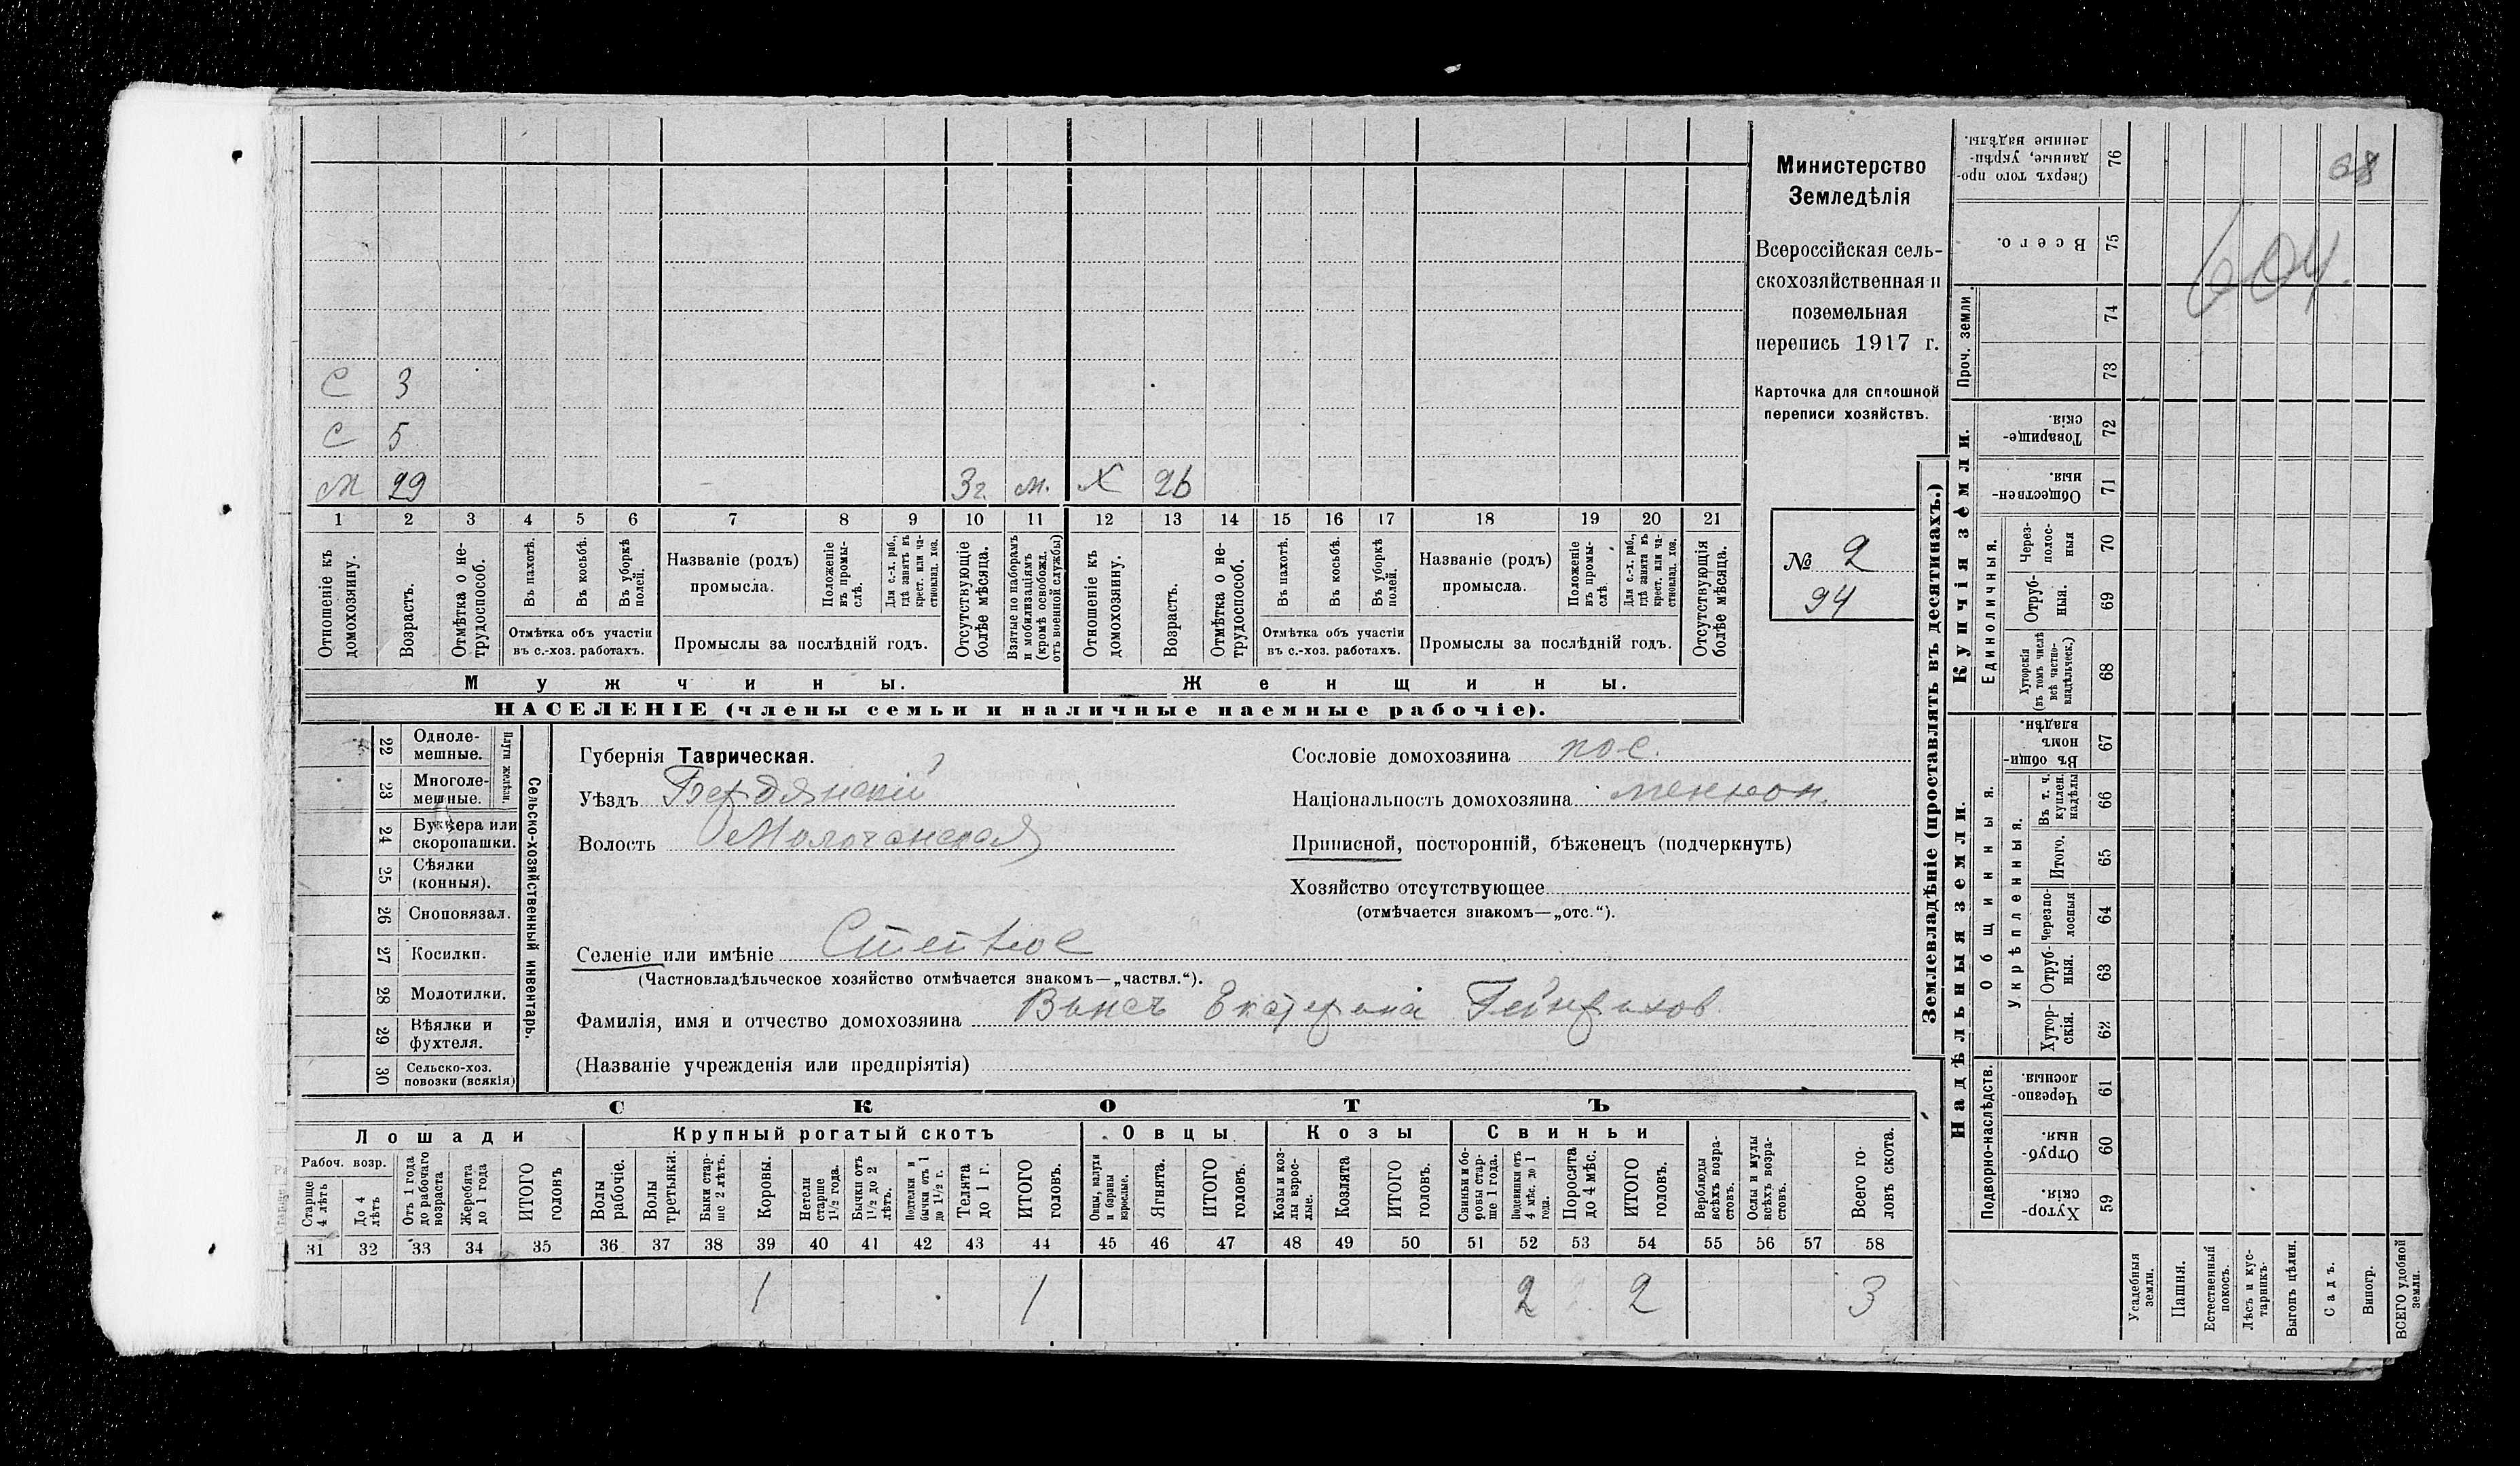 С 3
С 5
М 29 3 г. м. Х 26
1 2 3 4 5 6 7 8 9 10 11 12 13 14 15 16 17 18 19 20 21
Отношеніе къ домохозяину.
Возрастъ.
Отмѣтка о не-
трудоспособ.
Въ пахотѣ.
Въ косьбѣ.
Въ уборкѣ
полей.
Отмѣтка объ участіи
въ с.-хоз. работахъ.
Названіе (родъ)
промысла.
Положеніе
въ промы-
слѣ.
Для с.-х. раб.,
гдѣ занятъ въ
крест. или ча-
стновлад. хоз.
Промыслы за послѣдній годъ.
Отсутствующіе
болѣе мѣсяца.
Взятые по наборамъ
и мобилизаціямъ
(кромѣ освобожд.
отъ военной службы)
Отношеніе къ
домохозяину.
Возрастъ.
Отмѣтка о не-
трудоспособ.
Въ пахотѣ.
Въ косьбѣ.
Въ уборкѣ
полей.
Отмѣтка объ участіи
въ с.-хоз. работахъ.
Названіе (родъ)
промысла.
Положеніе
въ промы-
слѣ
Для с.-х. раб.,
гдѣ занята въ
крест. или ча-
стновлад. хоз.
Промыслы за послѣдній годъ.
Отсутствующія
болѣе мѣсяца.
Мужчины. Женщины.
НАСЕЛЕНІЕ (члены семьи и наличные наемные рабочіе).
Министерство
Земледѣлія
Всероссійская сель-
скохозяйственная и
поземельная
перепись 1917 г.
Карточка для сплошной
переписи хозяйствъ.
№ 2
94
22 Одноле-
мешные.
23 Многоле-
мешные.
Плуги желѣзн.
24 Буккера или
скоропашки.
25 Сѣялки
(конныя).
26 Сноповязал.
27 Косилки.
28 Молотилки.
29 Вѣялки и
фухтеля.
30 Сельско-хоз.
повозки (всякія)
Сельско-хозяйственный инвентарь.
Губернія Таврическая.
Уѣздъ Бердянскій
Волость Молочанская
Селеніе или имѣніе Степное
(Частновладѣльческое хозяйство отмѣчается знакомъ—„частвл.“).
Фамилія, имя и отчество домохозяина Винсъ Екатерина Гейнрихов.
(Названіе учрежденія или предпріятія)
Сословіе домохозяина пос.
Національность домохозяина меннон.
Приписной, посторонній, бѣженецъ (подчеркнуть)
Хозяйство отсутствующее
(отмѣчается знакомъ—„отс.“).
СКОТЪ
Лошади Крупный рогатый скотъ Овцы Козы Свиньи
Рабоч. возр.
Старше
4 лѣтъ
До 4
лѣтъ
Отъ 1 года
до рабочаго
возраста
Жеребята
до 1 года
ИТОГО
головъ
Волы
рабочіе.
Волы
третьяки.
Быки стар-
ше 2 лѣтъ.
Коровы.
Нетели
старше
1½ года.
Бычки отъ
1½ до 2
лѣтъ.
Подтелки и
бычки отъ 1
до 1½ г.
Телята
до 1 г.
ИТОГО
головъ.
Овцы, валухи
и бараны
взрослые.
Ягнята.
ИТОГО
головъ.
Козы и коз-
лы взрос-
лые.
Козлята
ИТОГО
головъ.
Свиньи и бо-
ровы стар-
ше 1 года.
Подсвинки отъ
4 мѣс. до 1
года.
Поросята
до 4 мѣс.
ИТОГО
головъ.
Верблюды
всѣхъ возра-
стовъ.
Ослы и мулы
всѣхъ возра-
стовъ.
Всего го-
ловъ скота.
31 32 33 34 35 36 37 38 39 40 41 42 43 44 45 46 47 48 49 50 51 52 53 54 55 56 57 58
1 1 2 2 3
Землевладѣніе (проставлять въ десятинахъ.)
Надѣльныя земли. Купчія земли. Проч. земли
Подворно-наслѣдств.
Общинныя.
Укрѣпленныя.
Единоличныя.
Сверхъ того про-
данные, укрѣп-
ленные надѣлы.
76
Всего.
75
74
73
Товарище-
скія.
72
Обществен-
ныя.
71
Через-
полос-
ныя
70
Отруб-
ныя.
69
Хуторскія
(въ томъ числѣ
всѣ частно-
владѣльческ.)
68
Въ общи-
номъ
владѣн.
67
Въ т. ч.
куплен.
надѣлы
66
Итого.
65
Черезпо-
лосныя
64
Отруб-
ныя.
63
Хутор-
скія.
62
Черезпо-
лосныя.
61
Отруб-
ныя.
60
Хутор-
скія.
59
Усадебныя
земли.
Пашня.
Естественный
покосъ.
Лѣсъ и кус-
тарникъ.
Выгонъ цѣлин.
Садъ.
Виногр.
ВСЕГО удобной
земли.
604.